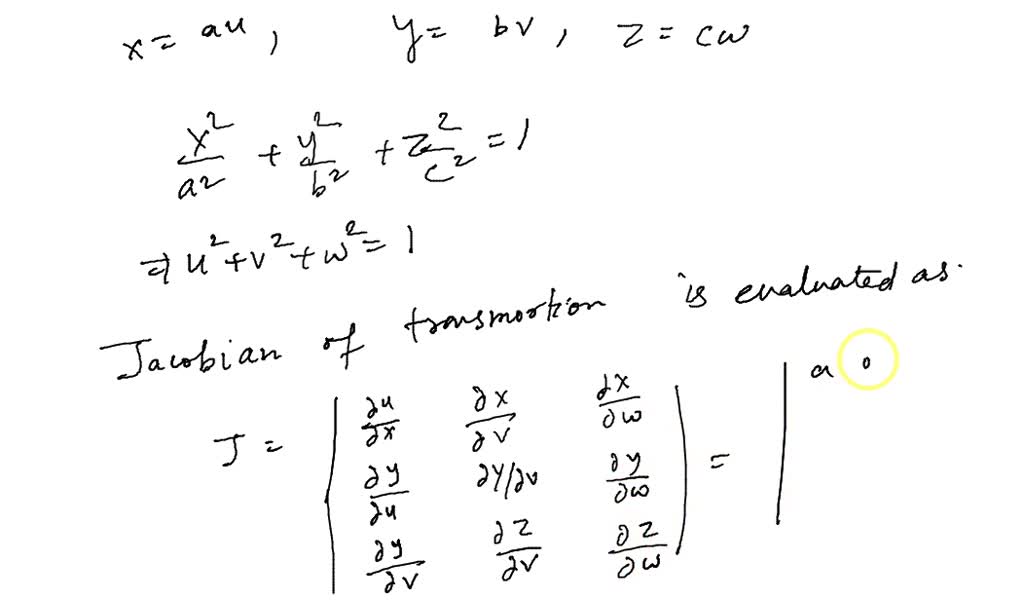 x = au, y = bv, z = cw
x²/a² + y²/b² + z²/c² = 1
⇒ u² + v² + w² = 1
Jacobian of transmortion is evaluated as.
J = | ∂u/∂x ∂x/∂v ∂x/∂w | = | a 0
| ∂y/∂u ∂y/∂v ∂y/∂w |
| ∂y/∂v ∂z/∂v ∂z/∂w |